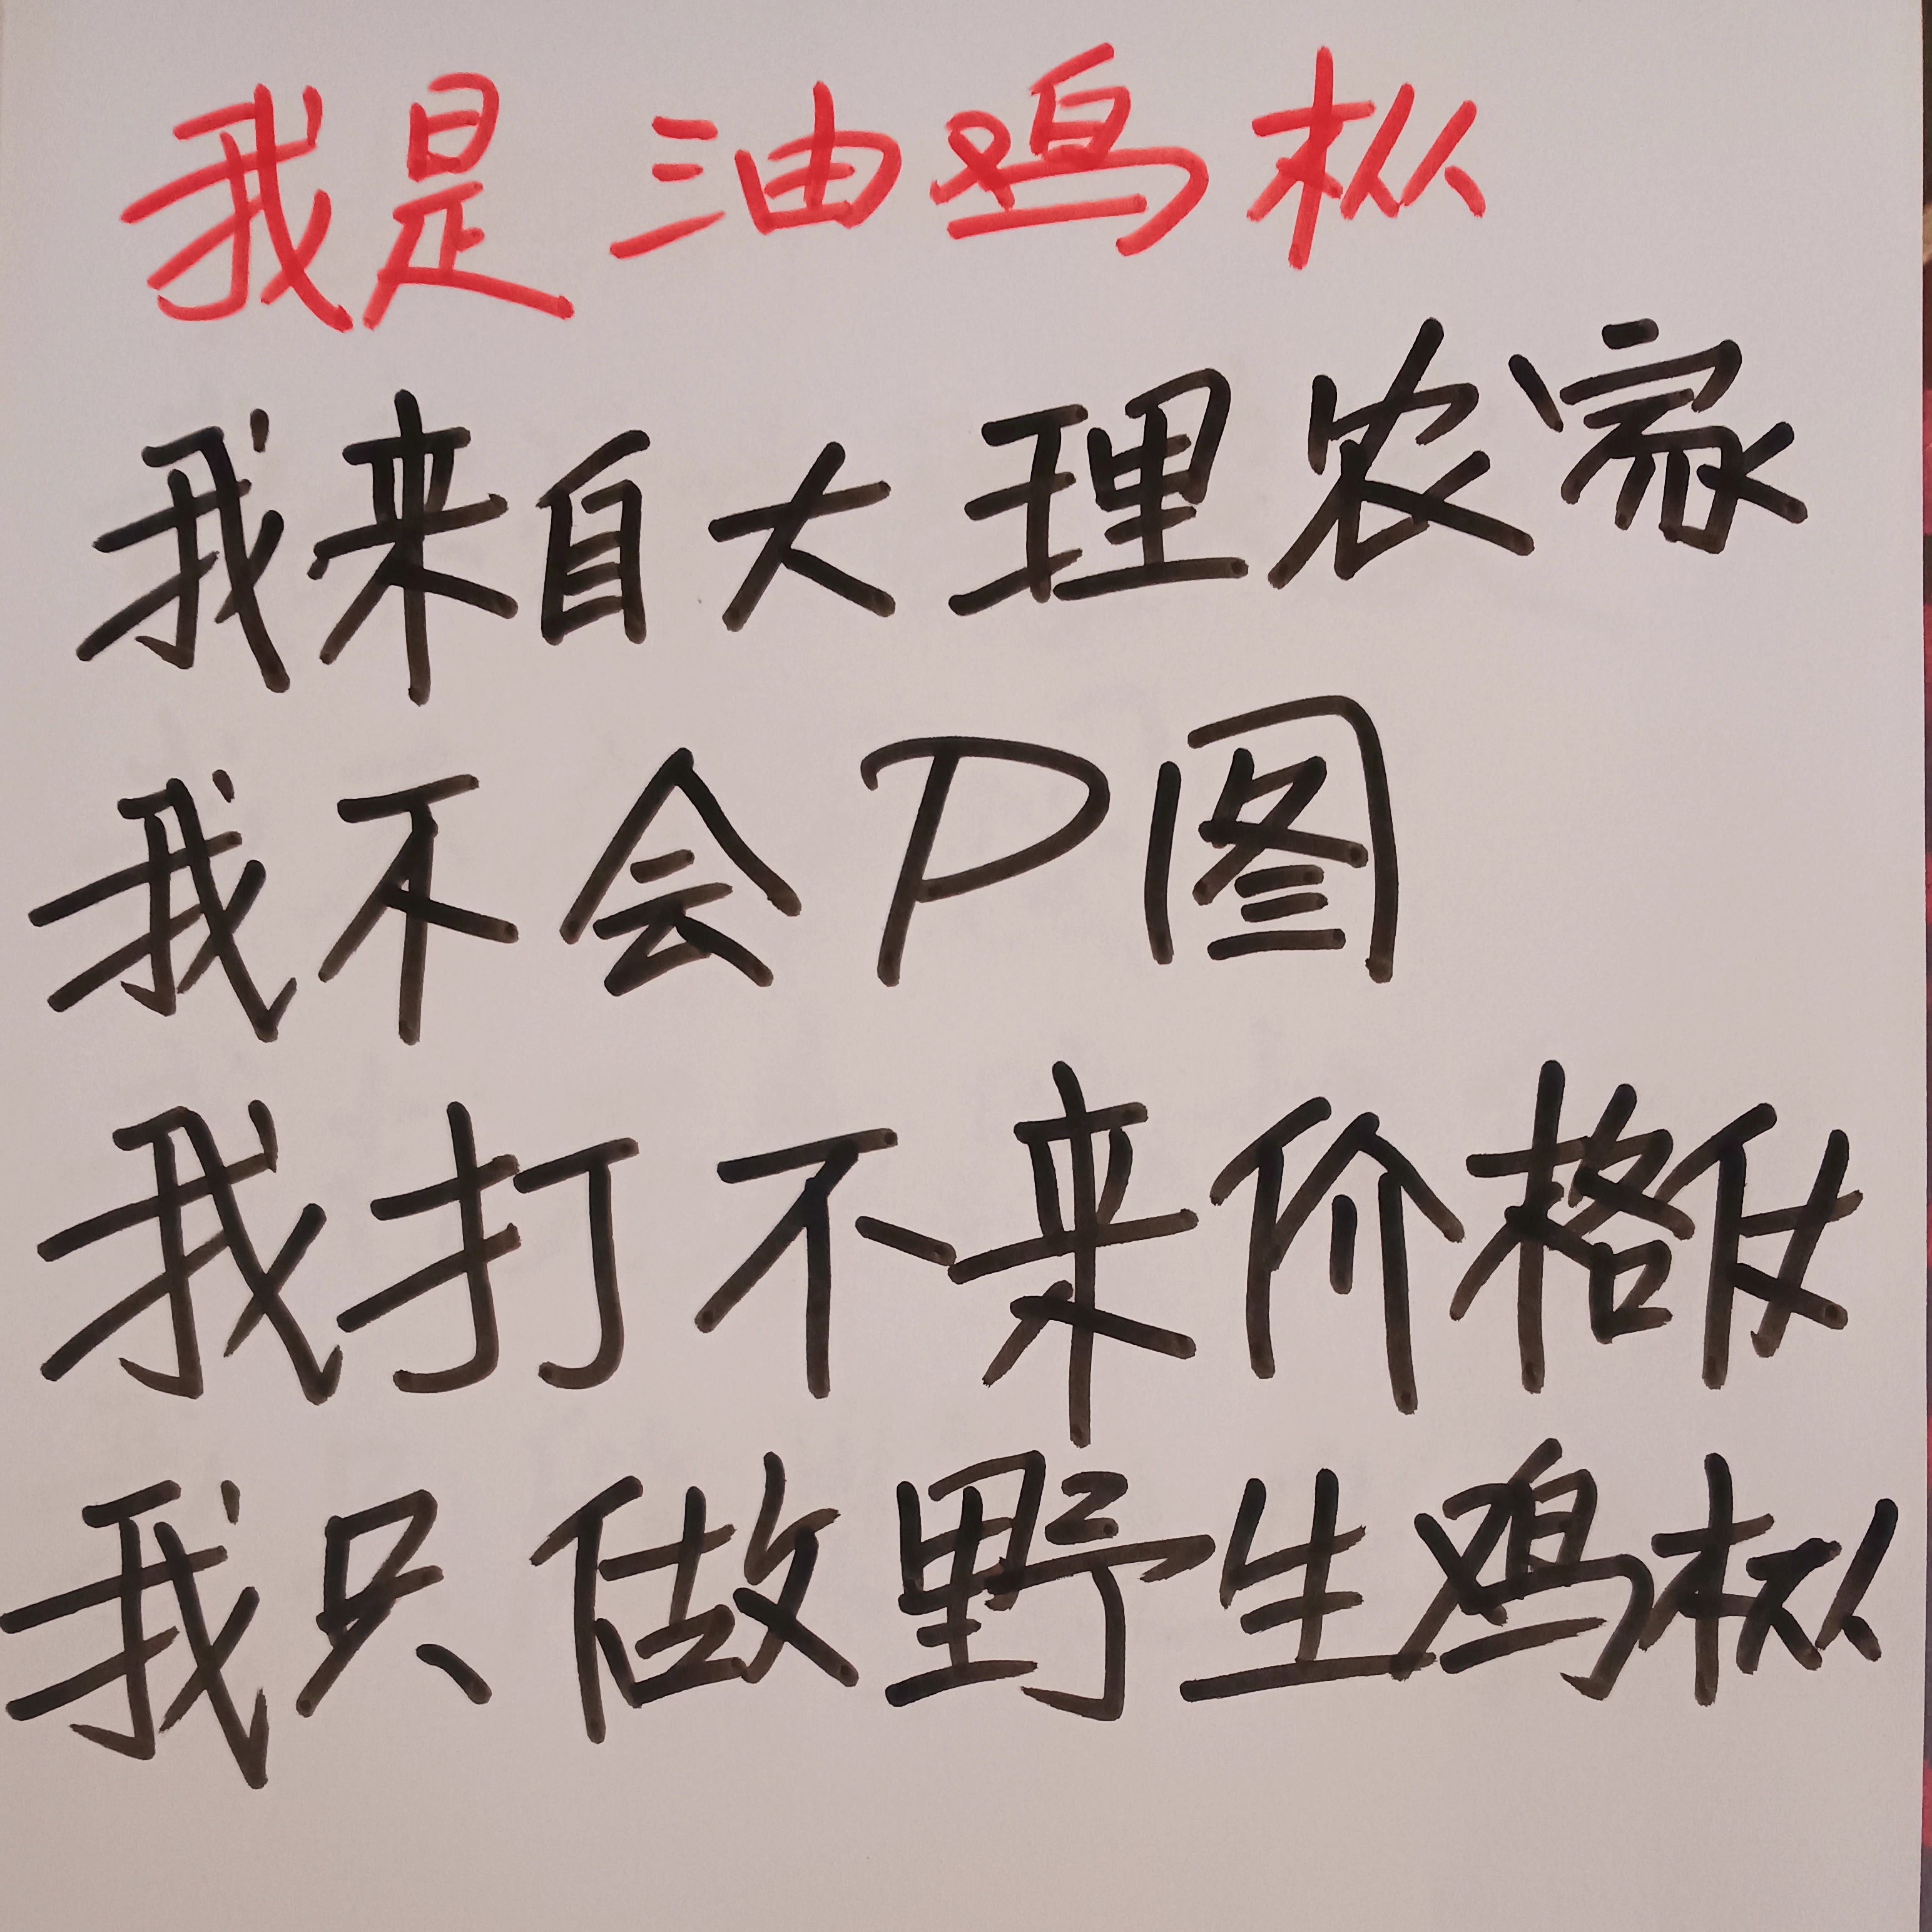 我是油鸡枞
我来自大理农家
我不会P图
我打不来价格仗
我只做野生鸡枞